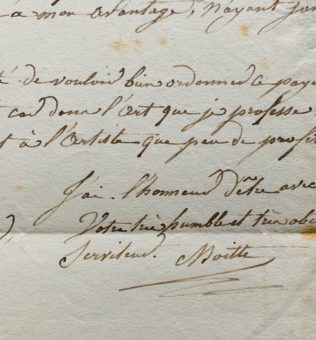 à mon avantage, n'ayant jam
té de vouloir bien ordonner ce paye
t car dans l'art que je professe
t à l'artiste que peu de profi
J'ai l'honneur d'etre avec
Votre très humble et très obé
Serviteur. Moitte